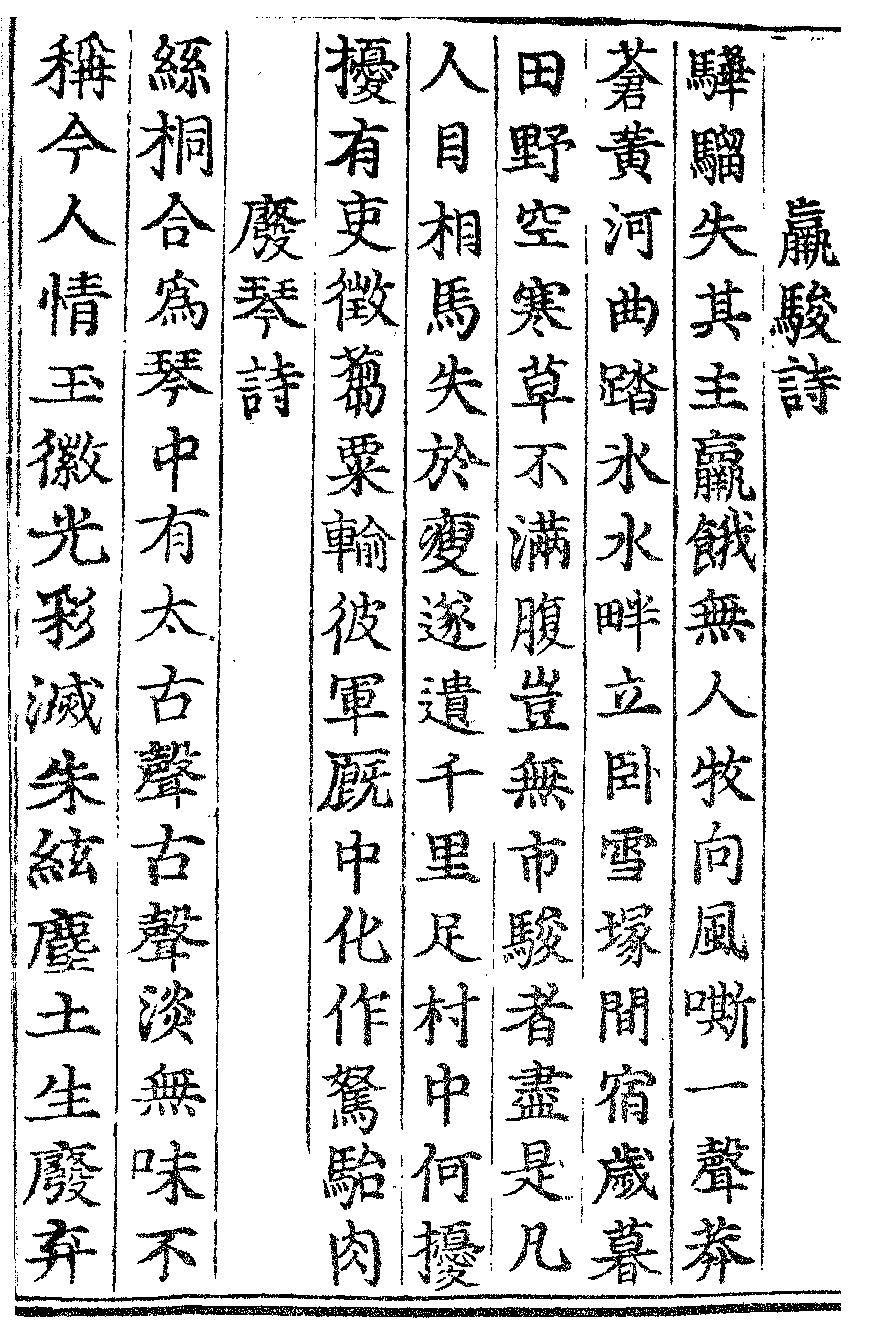 羸駿詩
驊騮失其主羸餓無人牧向風嘶一聲莽
蒼黃河曲踏氷水畔立卧雪塚間宿歲暮
田野空寒草不滿腹豈無市駿者盡是凡
人目相馬失於瘦遂遺千里足村中何擾
擾有吏徵蒭粟輸彼軍厩中化作駑駘肉
廢琴詩
絲桐合爲琴中有太古聲古聲淡無味不
稱今人情玉徽光彩滅朱絃塵土生廢弃